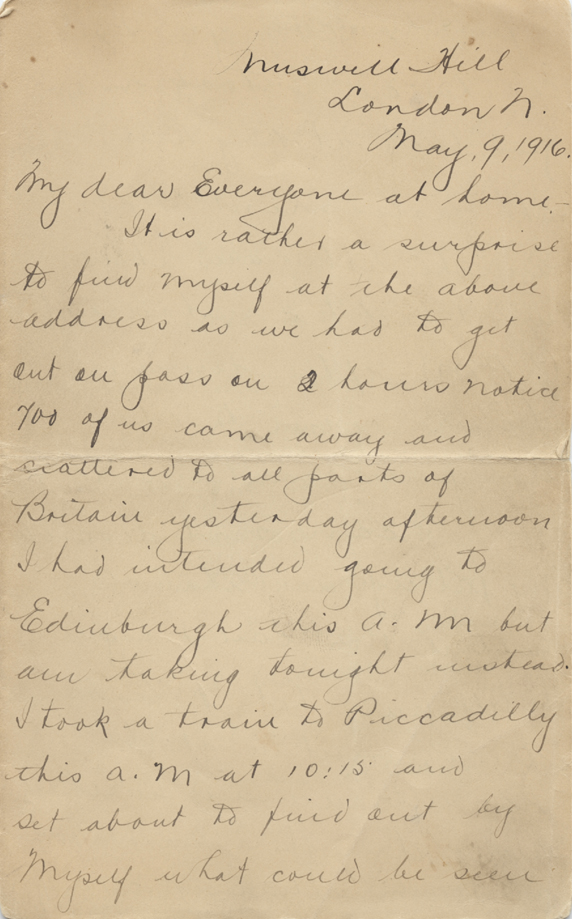 Muswell Hill
London N.
May, 9, 1916.
My dear Everyone at home-
It is rather a surprise
to find myself at the above
address as we had to get
out on pass on 2 hours notice
700 of us came away and
scattered to all parts of
Britain yesterday afternoon
I had intended going to
Edinburgh this A. M but
am taking tonight instead.
I took a train to Piccadilly
this A. M at 10:15 and
set about to find out by
Myself what could be seen